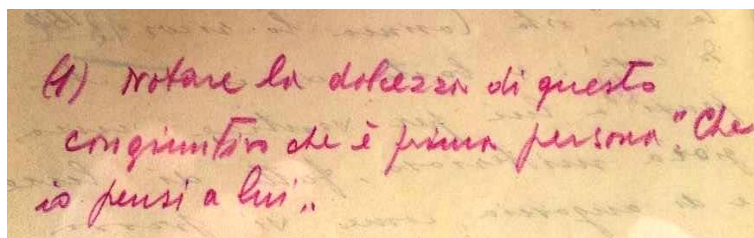 (1) Notare la dolcezza di questo
congiuntivo che è prima persona "Che
io pensi a lui„